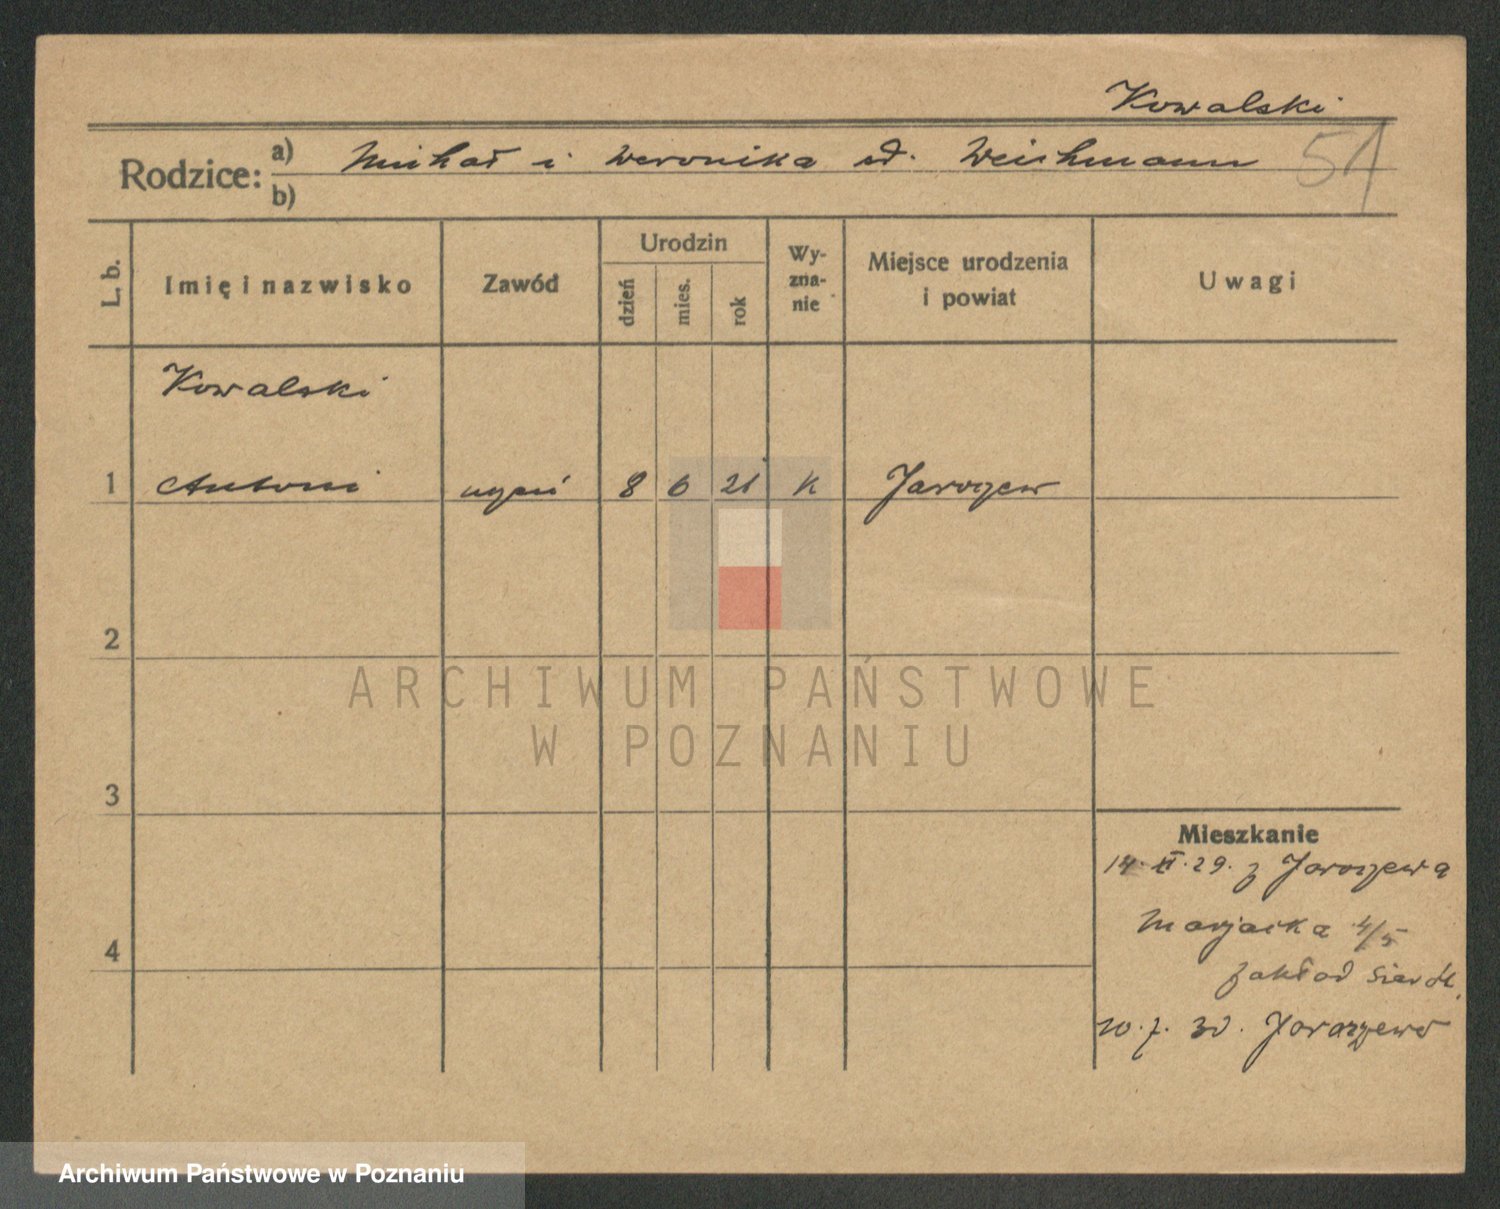 Kowalski
Rodzice: a) Michał i Weronika d. Weichmann 51
b)
L. b. Imię i nazwisko Zawód Urodzin dzień mies. rok Wyznanie Miejsce urodzenia i powiat Uwagi
Kowalski
1 Antoni uczeń 8 6 21 K Jaroszew
2
3
4
Mieszkanie
14. XI. 29. z Jaroszewa
4/5
zakład
10. 7. 30. Jaroszewo
ARCHIWUM PAŃSTWOWE
W POZNANIU
Archiwum Państwowe w Poznaniu